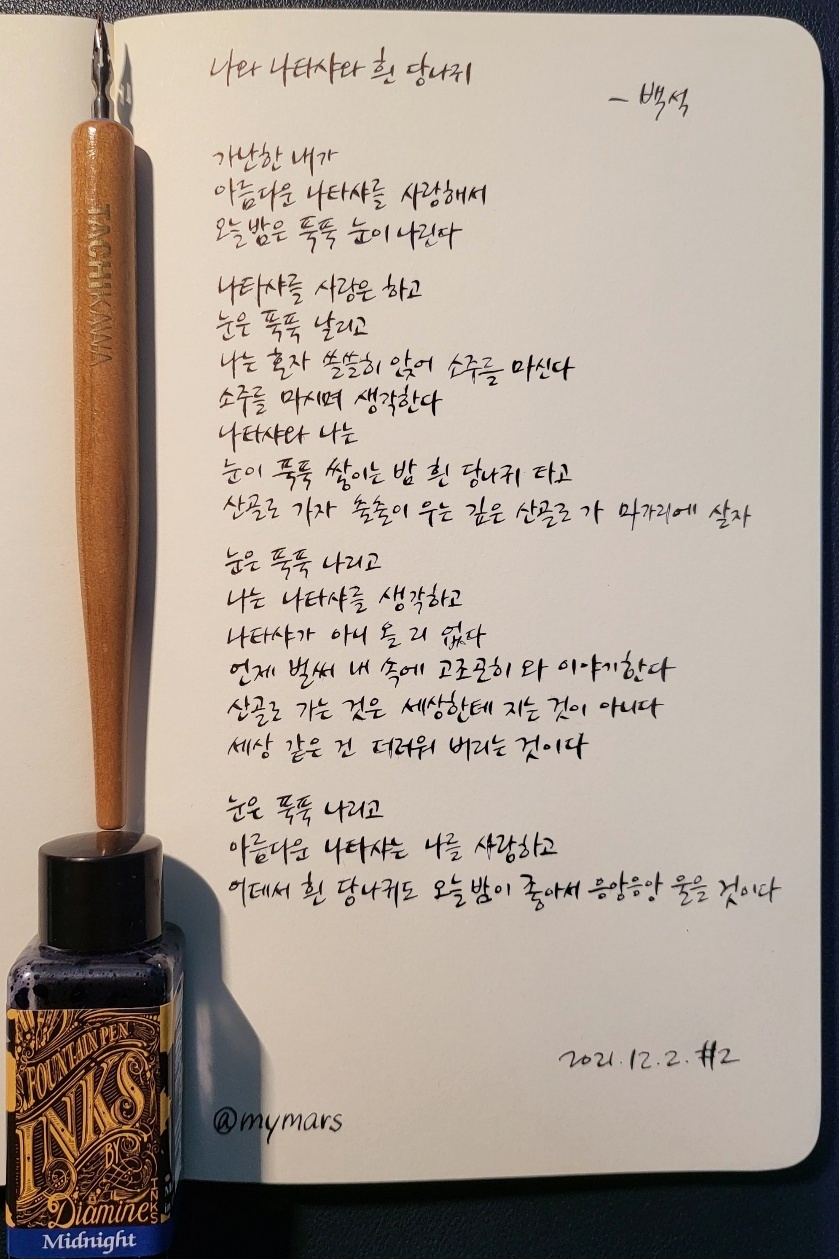 나와 나타샤와 흰 당나귀
- 백석
가난한 내가
아름다운 나타샤를 사랑해서
오늘밤은 푹푹 눈이 나린다
나타샤를 사랑은 하고
눈은 푹푹 날리고
나는 혼자 쓸쓸히 앉어 소주를 마신다
소주를 마시며 생각한다
나타샤와 나는
눈이 푹푹 쌓이는 밤 흰 당나귀 타고
산골로 가자 출출이 우는 깊은 산골로 가 마가리에 살자
눈은 푹푹 나리고
나는 나타샤를 생각하고
나타샤가 아니 올 리 없다
언제 벌써 내 속에 고조곤히 와 이야기한다
산골로 가는 것은 세상한테 지는 것이 아니다
세상 같은 건 더러워 버리는 것이다
눈은 푹푹 나리고
아름다운 나타샤는 나를 사랑하고
어데서 흰 당나귀도 오늘밤이 좋아서 응앙응앙 울을 것이다
2021.12.2. #2
@mymars
TACHIKAWA
FOUNTAIN PEN
INKS
BY
Diamine
INKS
Midnight